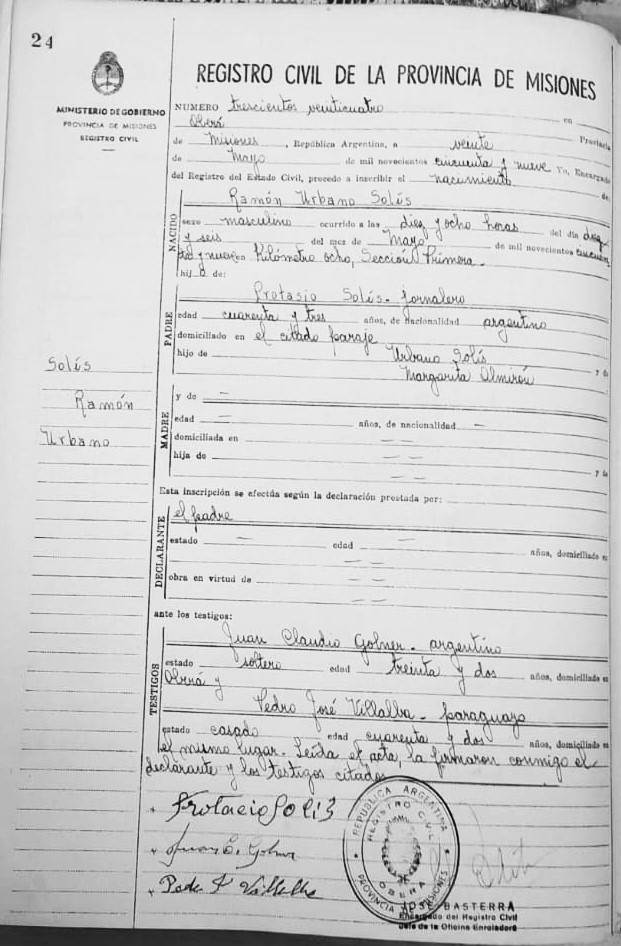 24
MINISTERIO DE GOBIERNO
PROVINCIA DE MISIONES
REGISTRO CIVIL
REGISTRO CIVIL DE LA PROVINCIA DE MISIONES
NUMERO trescientos veinticuatro en
Oberá Provincia
de Misiones, República Argentina, a veinte
de Mayo de mil novecientos cincuenta y nueve Yo, Encargado
del Registro del Estado Civil, procedo a inscribir el nacimiento de:
NACIDO
Ramón Urbano Solís
sexo masculino ocurrido a las diez y ocho horas del día diez
y seis del mes de Mayo de mil novecientos cincuen
ta y nueve en Kilómetro ocho, Sección Primera.
hij o de:
PADRE
Protasio Solís - jornalero
edad cuarenta y tres años, de nacionalidad argentino
domiciliado en el citado paraje
hijo de Urbano Solís y de
Margarita Almirón
Solís
Ramón
Urbano
MADRE
y de —
edad — años, de nacionalidad —
domiciliada en — —
hija de — — y de
— —
Esta inscripción se efectúa según la declaración prestada por:
DECLARANTE
el padre
estado — edad — años, domiciliado en
— —
obra en virtud de — —
— —
ante los testigos:
TESTIGOS
Juan Claudio Golner - argentino
estado soltero edad treinta y dos años, domiciliado en
Oberá y
Pedro José Villalba - paraguayo
estado casado edad cuarenta y dos años, domiciliado en
el mismo lugar. Leída el acta, la firmaron conmigo el
declarante y los testigos citados
Protacio Solis
Juan C. Golner
Pedro J Villalba
REPUBLICA ARGENTINA
REGISTRO CIVIL
OBERA
PROVINCIA DE MISIONES
JOSE BASTERRA
Encargado del Registro Civil
Jefe de la Oficina Enroladora